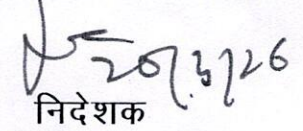 20/3/26
निदेशक